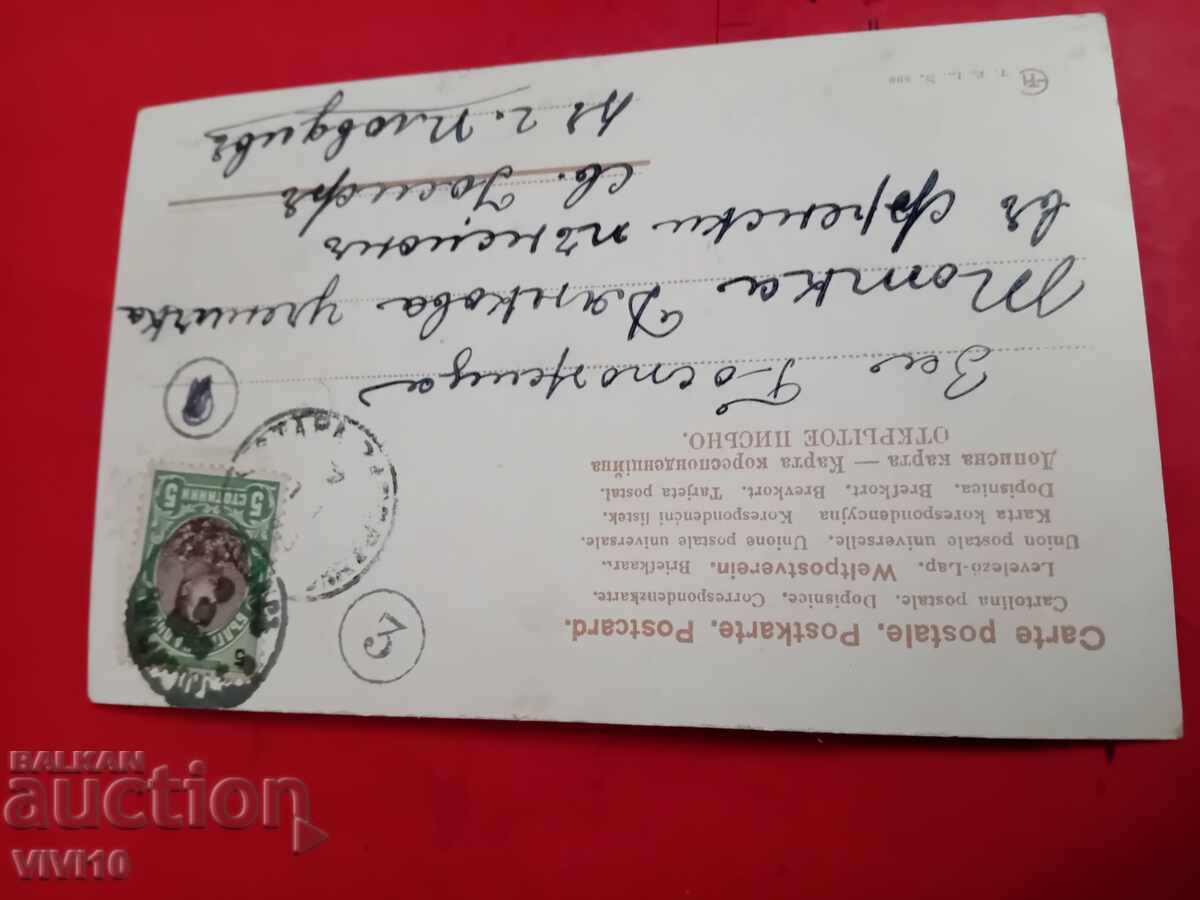 Carte postale. Postkarte. Postcard.
Cartolina postale. Dopisnice. Correspondenzkarte.
Levelező-Lap. Weltpostverein. Briefkaart.
Union postale universelle. Unione postale universale.
Karta korespondencyjna Korespondenční lístek.
Dopisnica. Brefkort. Brevkort. Tarjeta postal.
Дописна карта — Карта кореспонденційна
ОТКРЫТОЕ ПИСЬМО.
5
5
5 СТОТИНКИ 5
СТАРА
За Госпожица
Тотка Дянкова ученичка
въ френски пънсионъ
св. Йосифъ
въ г. Пловдивъ
T. E. L.
BALKAN
auction
VIVI10